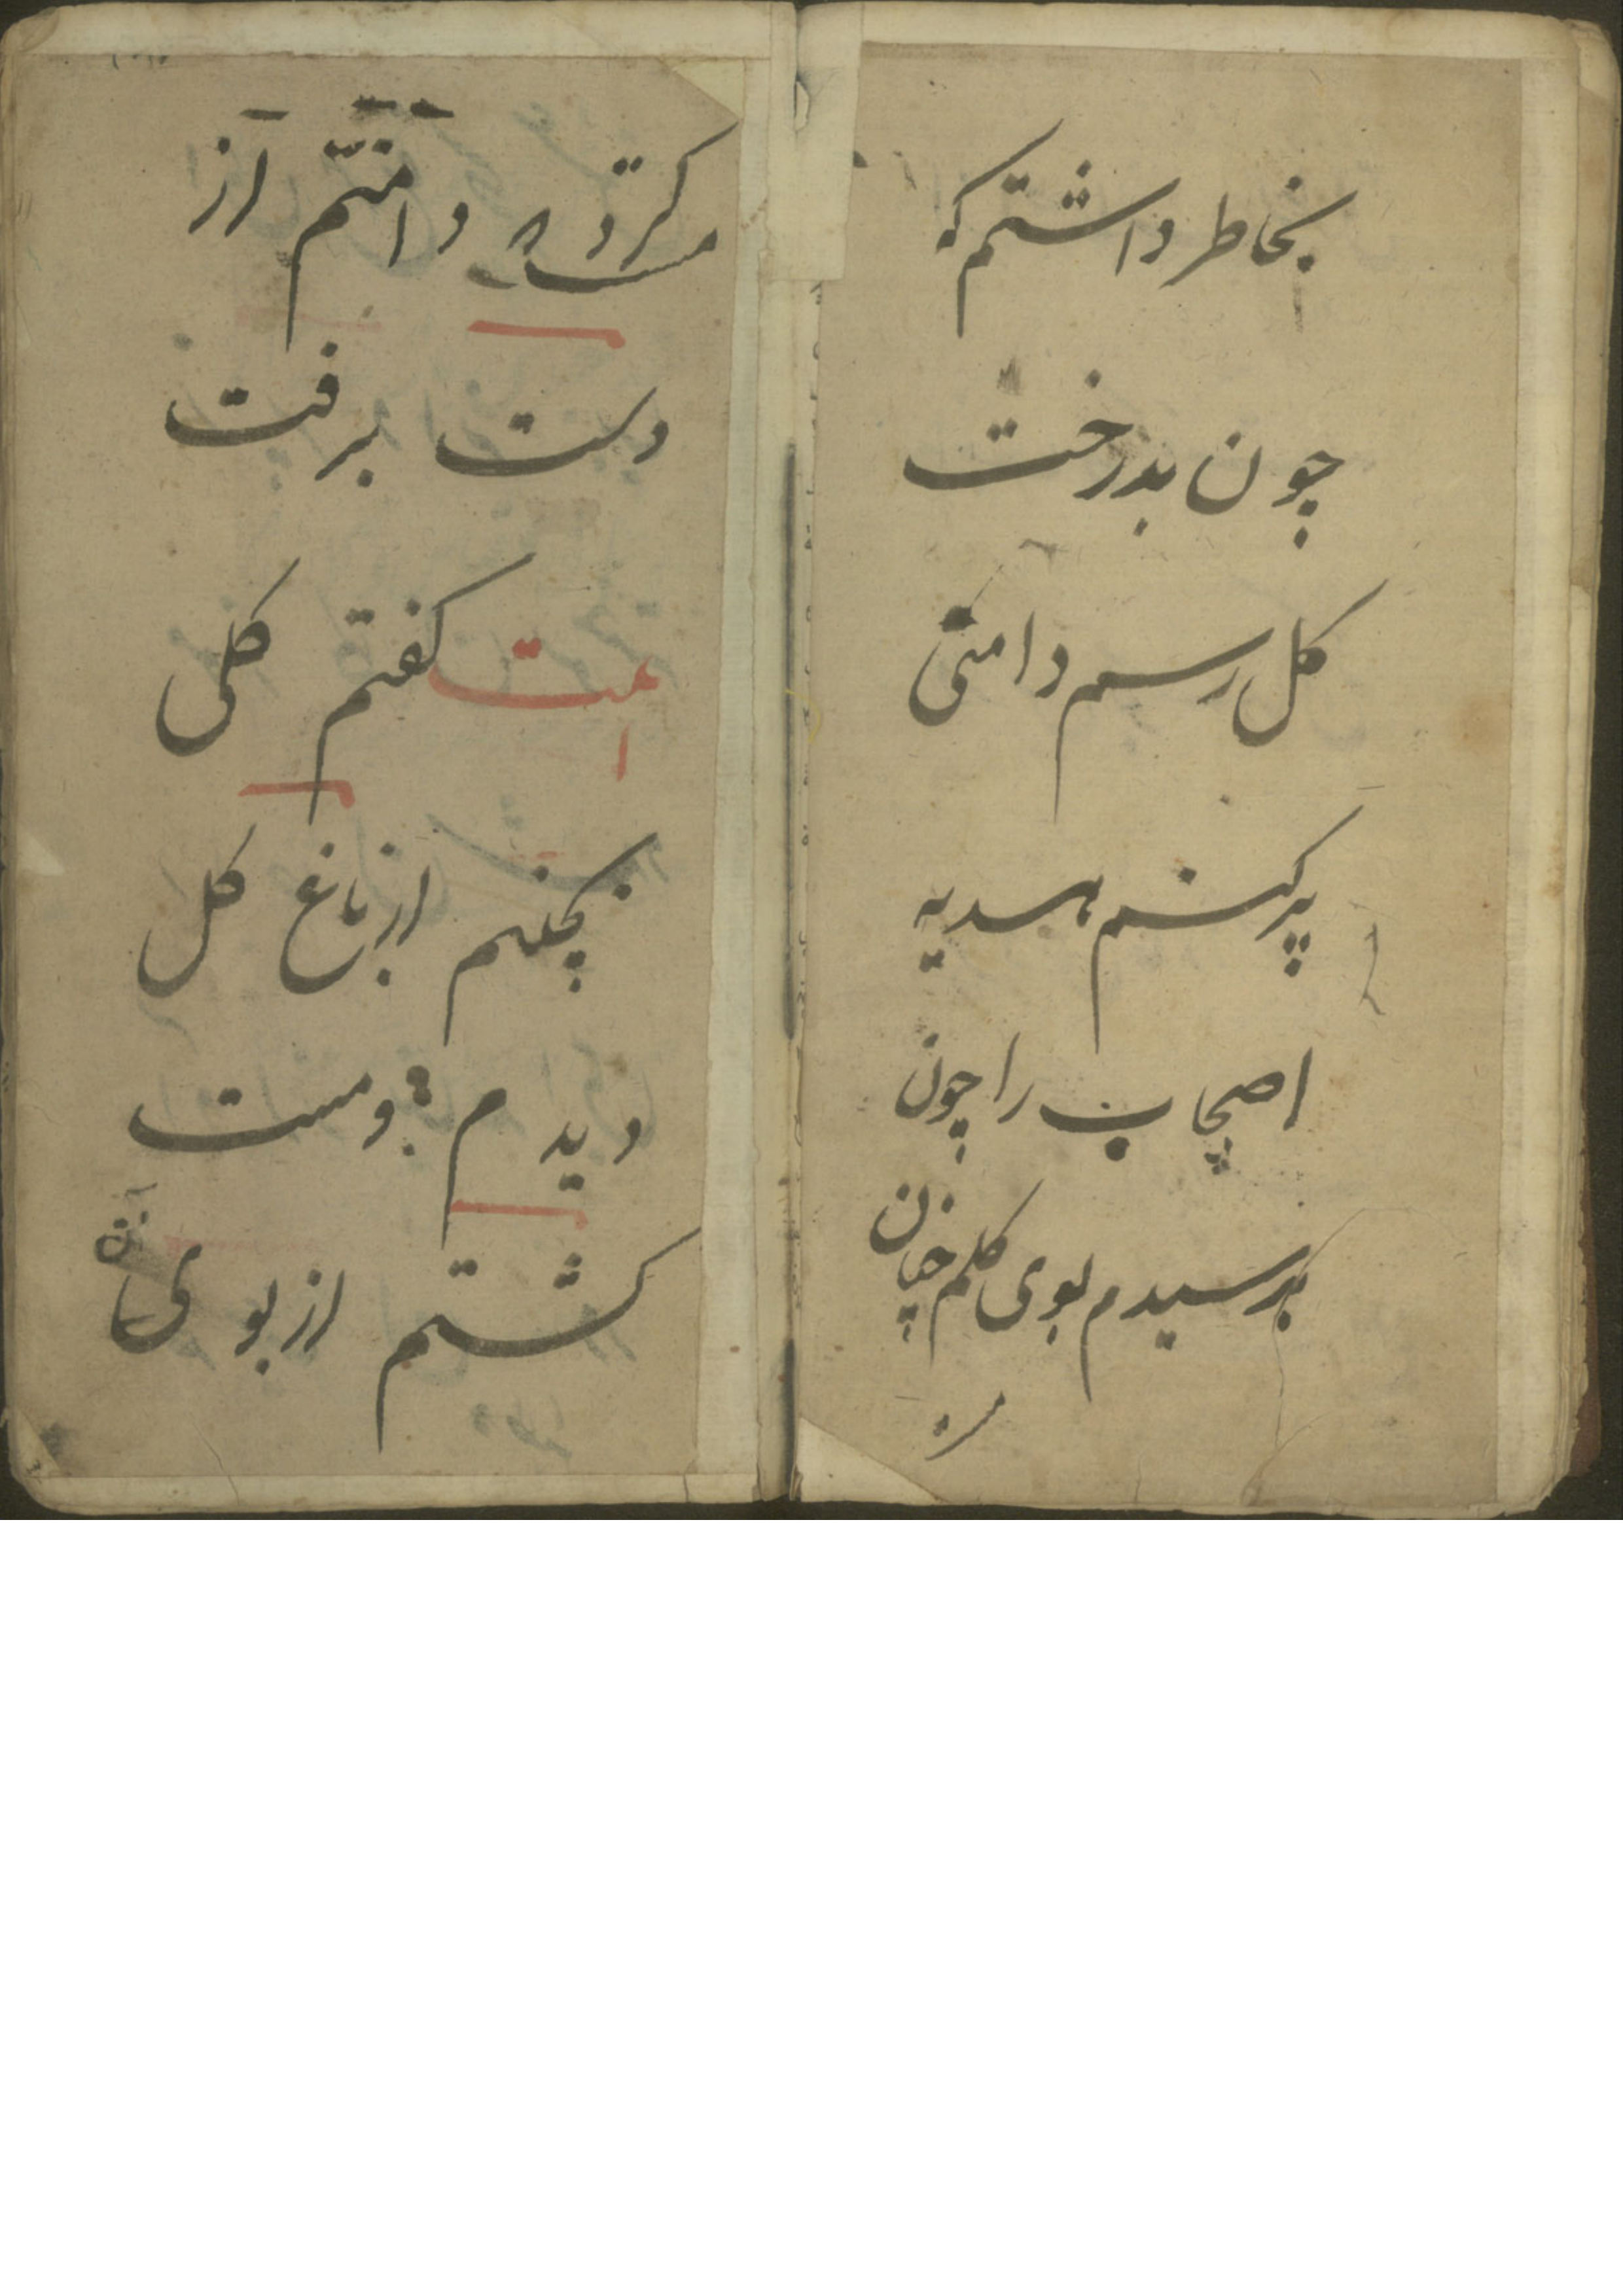 بخاطر داشتم که
چون بدرخت
کل رسم دامنی
پر کنم هدیه
اصحاب را چون
برسیدم بوی کلم چنان
مست
مست کرد که دامنم از
دست برفت
بیت کفتم کلی
بچینم از باغ کل
دیدم و مست
کشتم از بوی